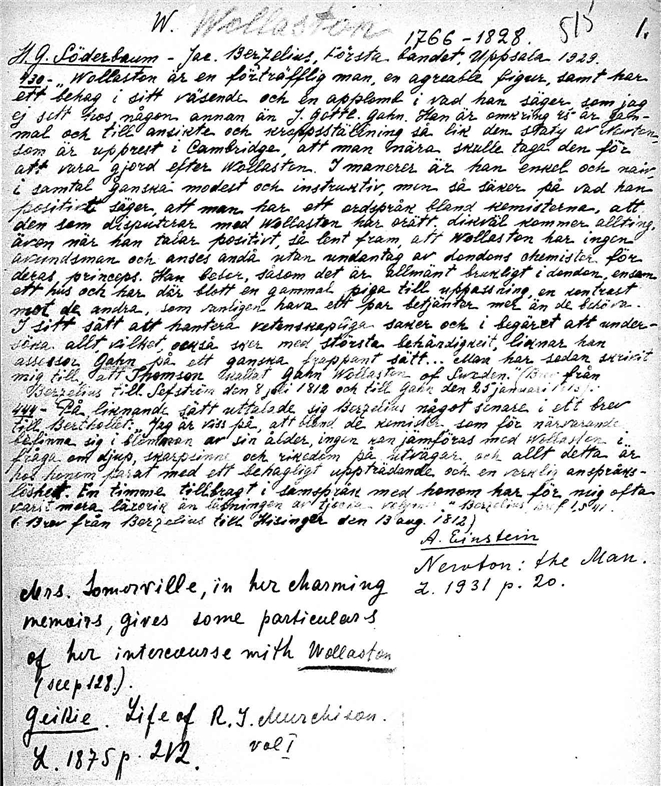 W. Wollaston
1766-1828. 515 1.
H. G. Söderbaum - Jac. Berzelius, Första bandet, Uppsala 1929.
430- "Wollaston är en förträfflig man, en agreable figur, samt har
ett behag i sitt väsende och en applomb i vad han säger, som jag
ej sett hos någon annan än J. Gottl. Gahn. Han är omkring är gam-
mal och till ansikte och kroppsställning så lik den staty av Newton,
som är upprest i Cambridge, att man nära skulle taga den för
att vara gjord efter Wollaston. I manerer är han enkel och naiv,
i samtal ganska modest och instruktiv, men så säker på vad han
positivt säger, att man har ett ordspråk bland kemisterna, att
den som disputerar med Wollaston har orätt, dikväl kommer allting,
även när han talar positivt, så lent fram, att Wollaston har ingen
avundsman och anses ändå utan undantag av londons chemister för
deras princeps. Han bebor, såsom det är allmänt brukligt i London, ensam
ett hus och har där blott en gammal piga till uppassning, en kontrast
mot de andra, som vanligen hava ett par betjänter mer än de behöva.
I sitt sätt att hantera vetenskapliga saker och i begäret att under-
söka allt vilket också sker med största behärdighet, liknar han
assessor Gahn på ett ganska frappant sätt... Man har sedan skrivit
mig till, att Thomson kallat Gahn Wollaston of Sweden. (Brev från
Berzelius till Sefström den 8 juli 1812 och till Gahn den 25 januari
444- På liknande sätt uttalade sig Berzelius något senare i ett brev
till Berthollet: "Jag är viss på, att bland de kemister, som för närvarande
befinna sig i blomman av sin ålder, ingen kan jämföras med Wollaston i
fråga om djup, skarpsinne och rikedom på utvägar, och allt detta är
hos honom parat med ett behagligt uppträdande och en verklig anspråks-
löshet. En timme tillbragt i samspråk med honom har för mig ofta
varit mera lärorik än läsningen av tjocka volymer." Berzelius
(Brev från Berzelius till Hisinger den 13 aug. 1812)
A. Einstein
Newton: the Man.
L. 1931 p. 20.
Mrs. Somerville, in her charming
memoirs, gives some particulars
of her intercourse with Wollaston
(see p 128.).
Geikie. Life of R. I. Murchison.
vol I
L. 1875 p. 212.